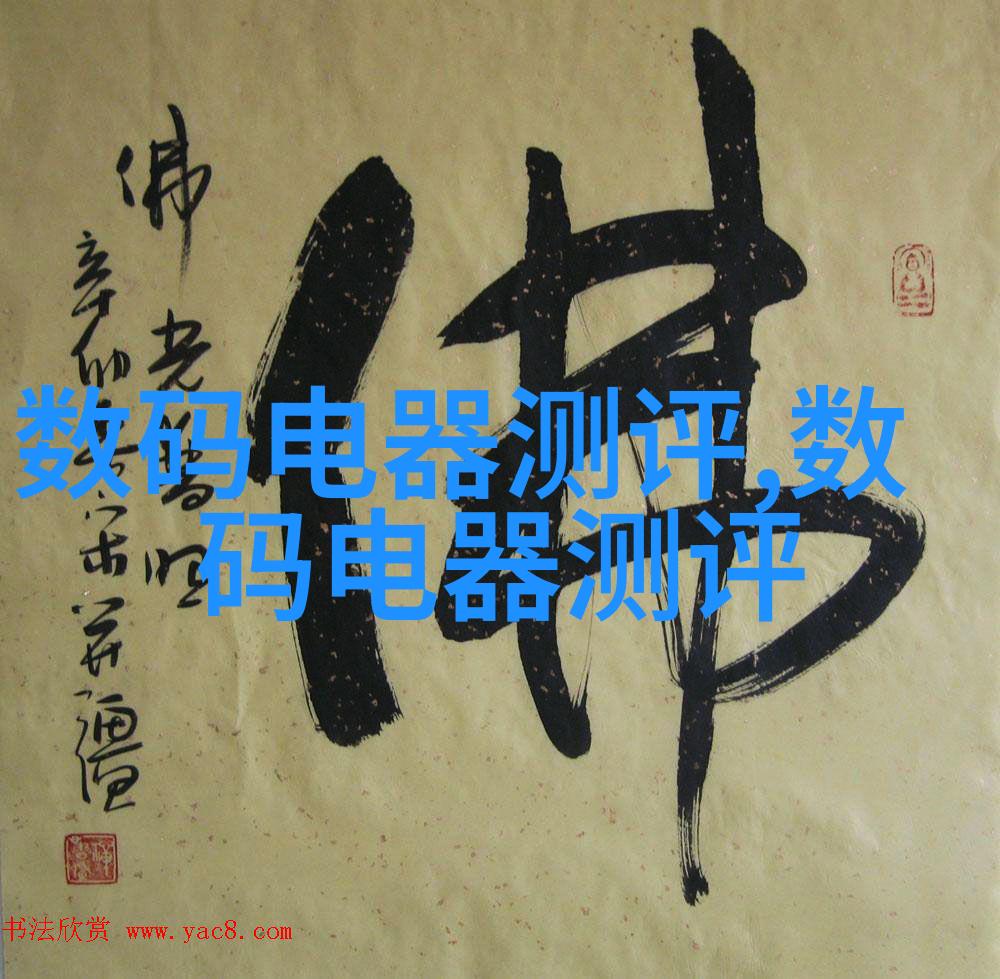 佛
佛光普照
辛卯
数码电器测评,数
码电器测评
书法欣赏 www.yac8.com